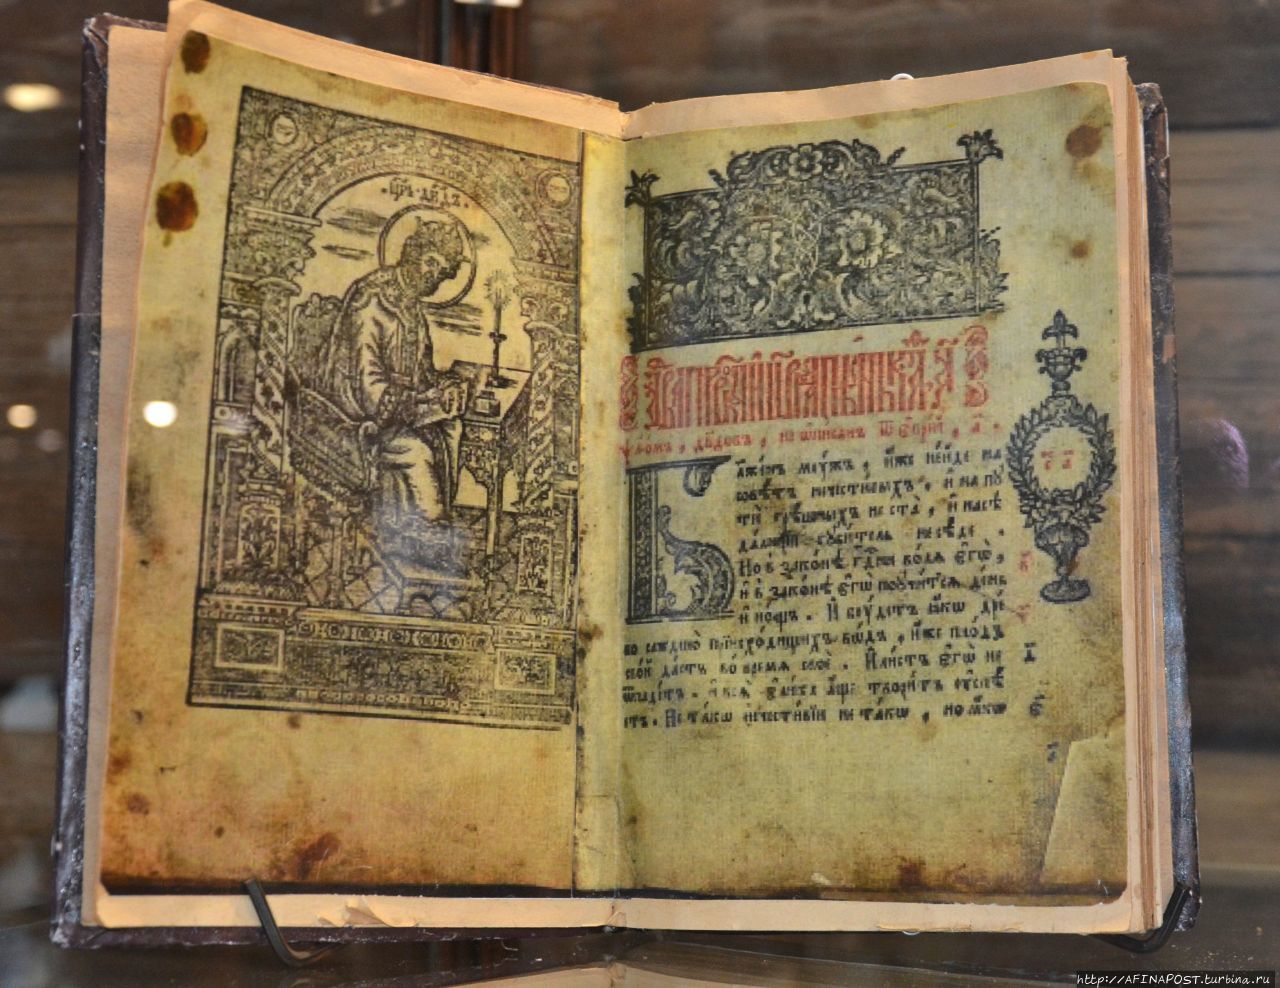 Цр҃ь Дв҃дъ
ѱало́мъ, дв҃довъ, не ѡ҆писанъ ѿ є҆врей, а҃.
Блаже́нъ мꙋ́жъ, и҆́же не и҆́де на
совѣ́тъ нечести́выхъ, и҆ на пꙋ
тѝ грѣ́шныхъ не ста̀, и҆ на сѣ
да́лищи гꙋби́тель не сѣ́де.
Но в зако́нѣ гд҃ни во́лѧ є҆гѡ̀,
и҆ в зако́нѣ є҆гѡ̀ поꙋчи́тсѧ де́нь
и҆ но́щь. И҆ бꙋ́детъ ꙗ҆́кѡ дре́
во сажено̀ при и҆схо́дищихъ во́дъ, и҆́же пло́дъ
сво́й да́стъ во вре́мѧ своѐ. И҆ ли́стъ є҆гѡ̀ не
и҆ всѧ̀ є҆ли́ка а҆́ще твори́тъ ᲂу҆спѣ́
етъ. Не та́кѡ нечести́вїи не та́кѡ, но ꙗ҆́кѡ
http://AFINAPOST.turbina.ru